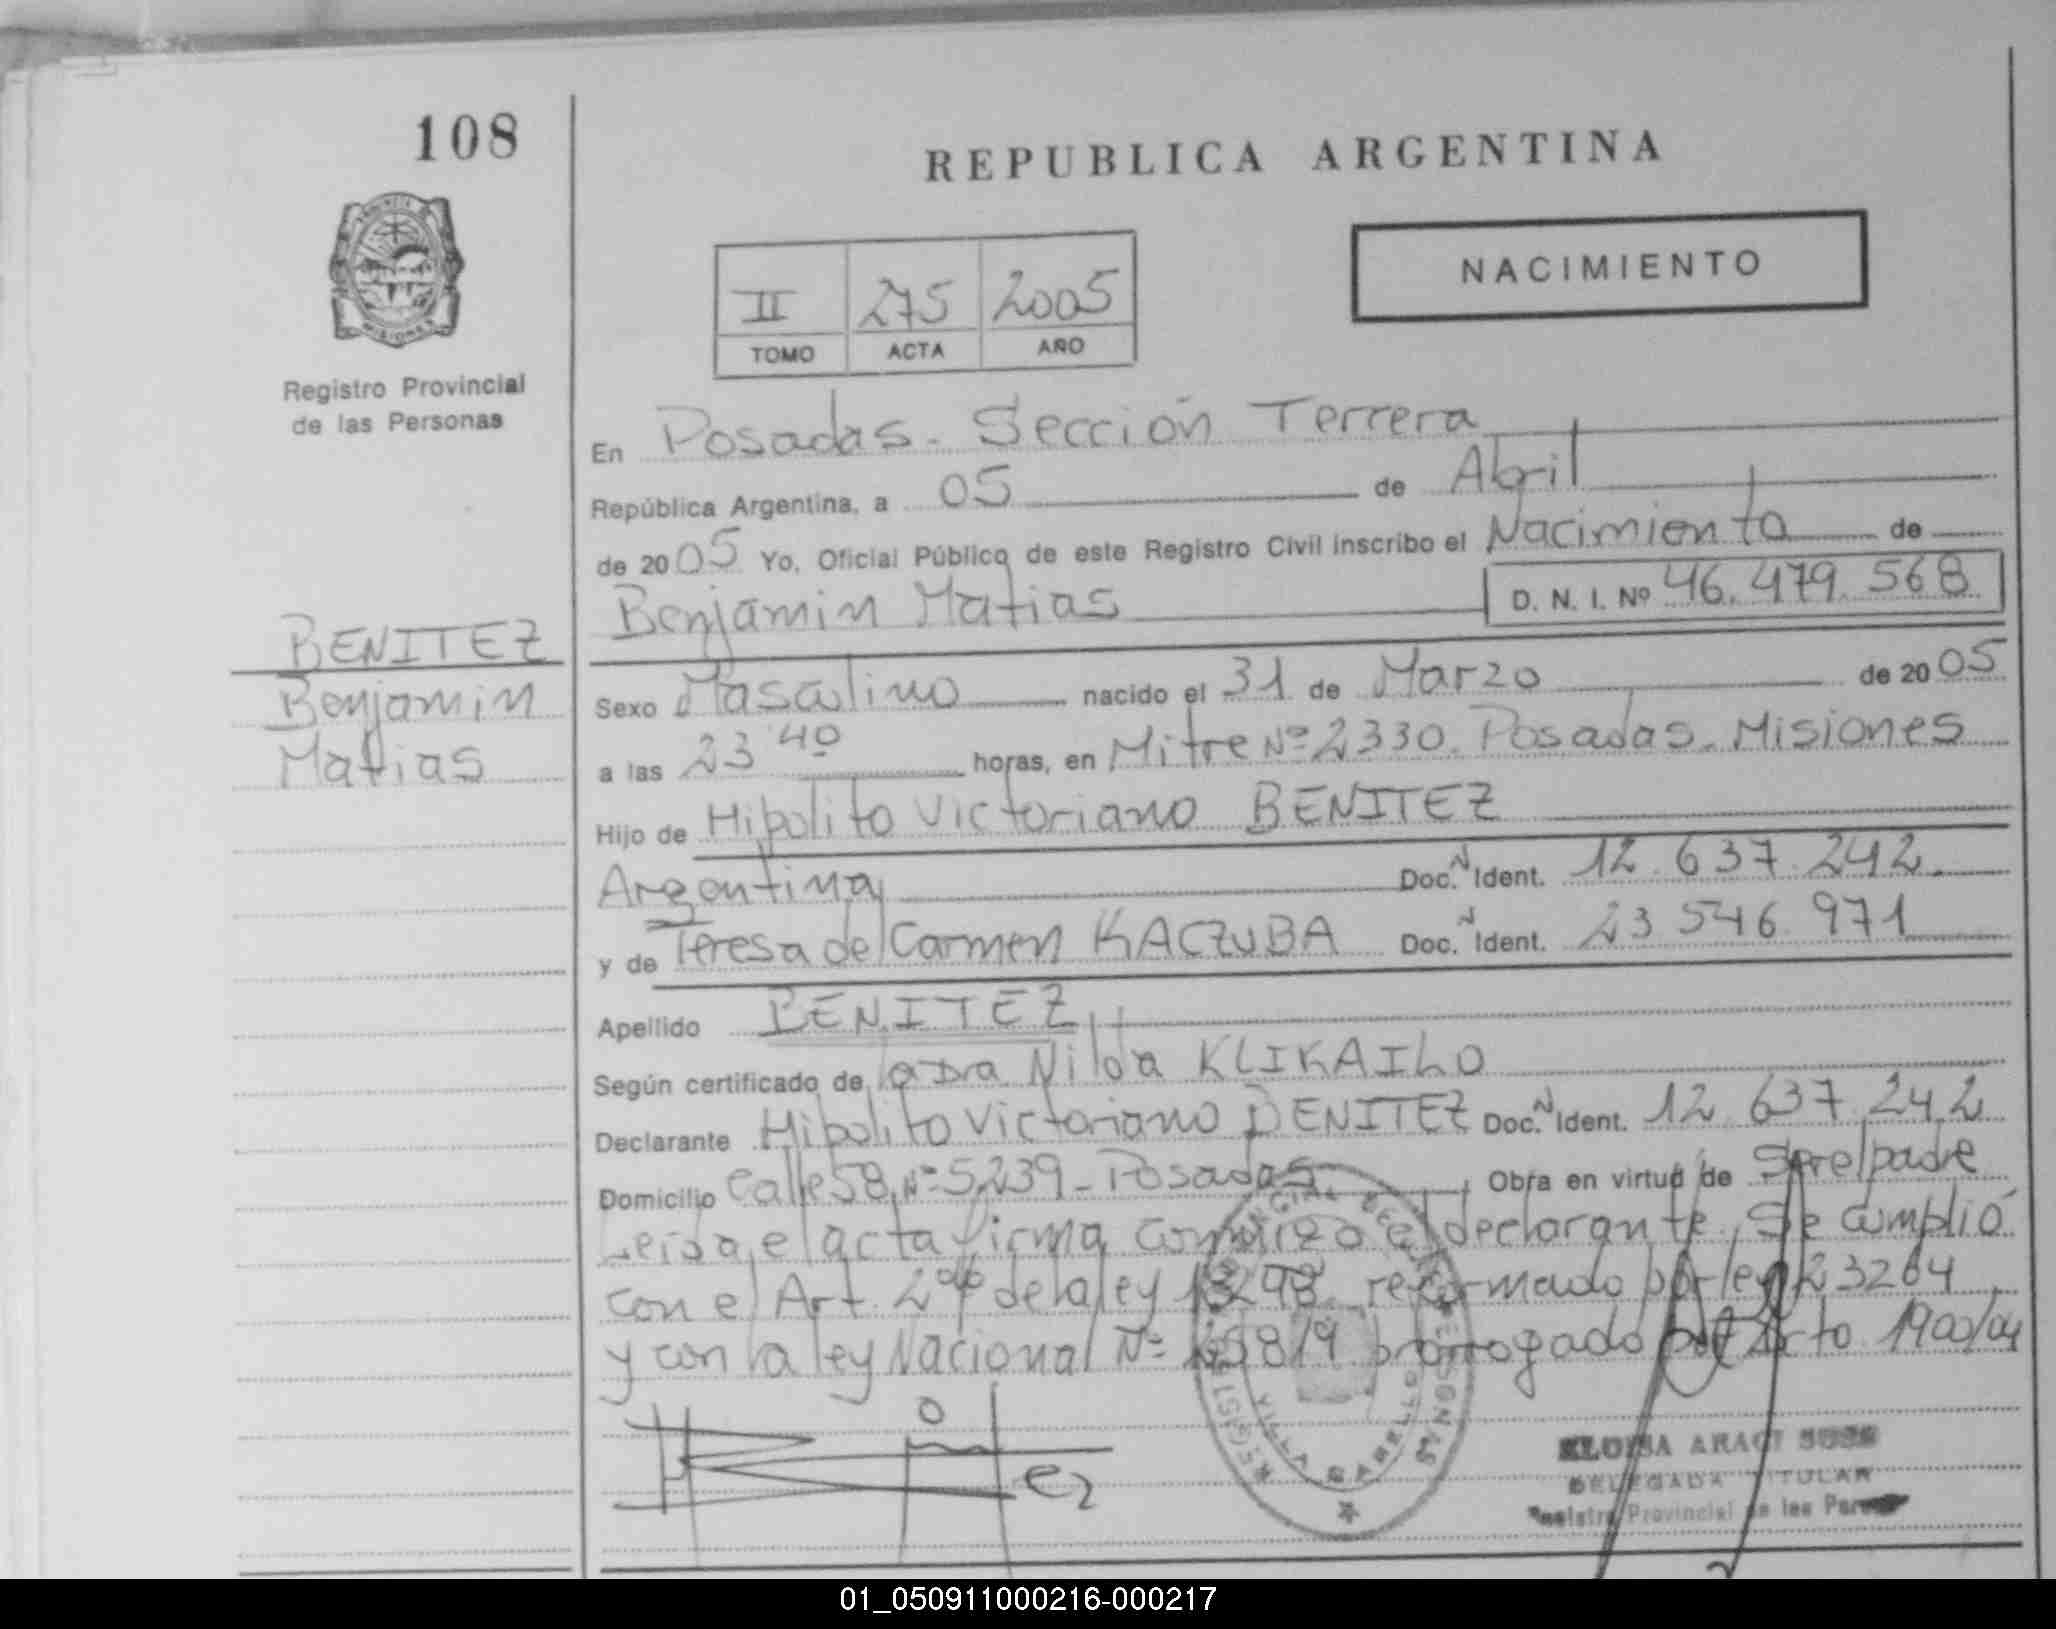 108
REPUBLICA ARGENTINA
NACIMIENTO
II 275 2005
TOMO ACTA AÑO
PROVINCIA DE
MISIONES
Registro Provincial
de las Personas
En Posadas. Sección Terrera
República Argentina, a 05 de Abril
de 2005 Yo, Oficial Público de este Registro Civil inscribo el Nacimiento de
Benjamin Matias D. N. I. Nº 46.479.568
BENITEZ
Benjamin
Matias
Sexo Masculino nacido el 31 de Marzo de 2005
a las 23 40 horas, en Mitre Nº 2330. Posadas. Misiones
Hijo de Hipolito Victoriano BENITEZ
Argentina Doc. Ident. 12.637.242.
y de Teresa del Carmen KACZUBA Doc. Ident. 23 546 971
Apellido BENITEZ
Según certificado de la Dra Nilda KLIKAILO
Declarante Hipolito Victoriano BENITEZ Doc. Ident. 12.637.242
Domicilio Calle 58 Nº 5239 - Posadas Obra en virtud de Ser el padre
Leida el acta firma conmigo el declarante. Se cumplió
con el Art. 2º de la ley reformado por ley 23264
y con la ley Nacional Nº prorrogado por 1900/04
VILLA CABELLO
ELOISA ARACI
DELEGADA TITULAR
Registro Provincial de las
01_050911000216-000217